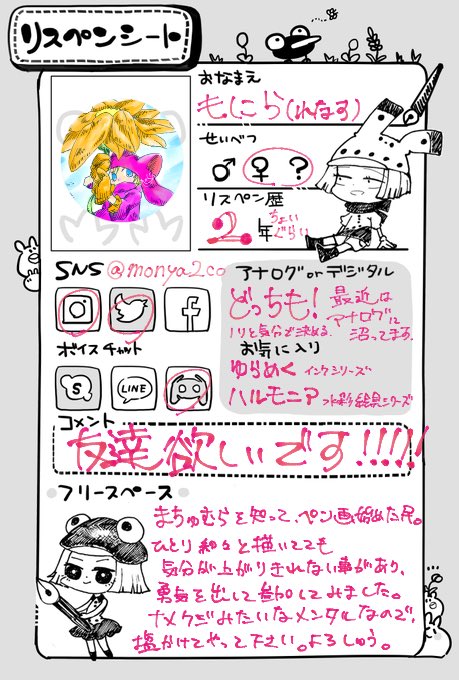 リスペンシート
おなまえ
もにら(れなす)
せいべつ
♂ ♀ ?
リスペン歴
2年 ちょいぐらい
SNS @monya2co
アナログ or デジタル
どっちも! 最近は
アナログに
沼ってます。
ノリと気分で決める。
ボイスチャット
お気に入り
ゆらめく インクシリーズ
S LINE
ハルモニア
コメント
友達欲しいです!!!!!
フリースペース
まちゅむらを知って、ペン画始めた民。
ひとり 細々と描いてても
気分が上がりきれない事があり、
勇気を出して参加してみました。
ナメクジみたいなメンタルなので、
塩かけてやって下さい。よろしゅう。